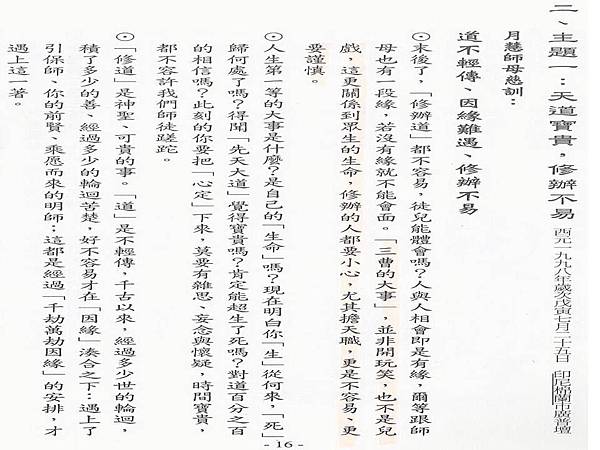 二、主題一：天道寶貴，修辦不易 西元一九九八年歲次戊寅七月二十五日 印尼棉蘭市廣普壇
月慧師母慈訓：
道不輕傳、因緣難遇、修辦不易
⊙末後了，「修辦道」都不容易，徒兒能體會嗎？人與人相會即是有緣，爾等跟師
母也有一段緣，若沒有緣就不能會面。「三曹的大事」，並非開玩笑，也不是兒
戲，這更關係到眾生的生命，修辦的人都要小心，尤其擔天職，更是不容易、更
要謹慎。
⊙人生第一等的大事是什麼？是自己的「生命」嗎？現在明白你「生」從何來，「死」
歸何處了嗎？得聞「先天大道」覺得寶貴嗎？肯定能超生了死嗎？對道百分之百
的相信嗎？此刻的你要把「心定」下來，莫要有雜思、妄念與懷疑，時間寶貴，
都不容許我們師徒蹉跎。
⊙「修道」是神聖、可貴的事。「道」是不輕傳，千古以來，經過多少世的輪迴，
積了多少的善、經過多少的輪迴苦楚，好不容易才在「因緣」湊合之下：遇上了
引保師、你的前賢、乘愿而來的明師：這都是經過「千劫萬劫因緣」的安排，才
遇上這一著。
- 16 -